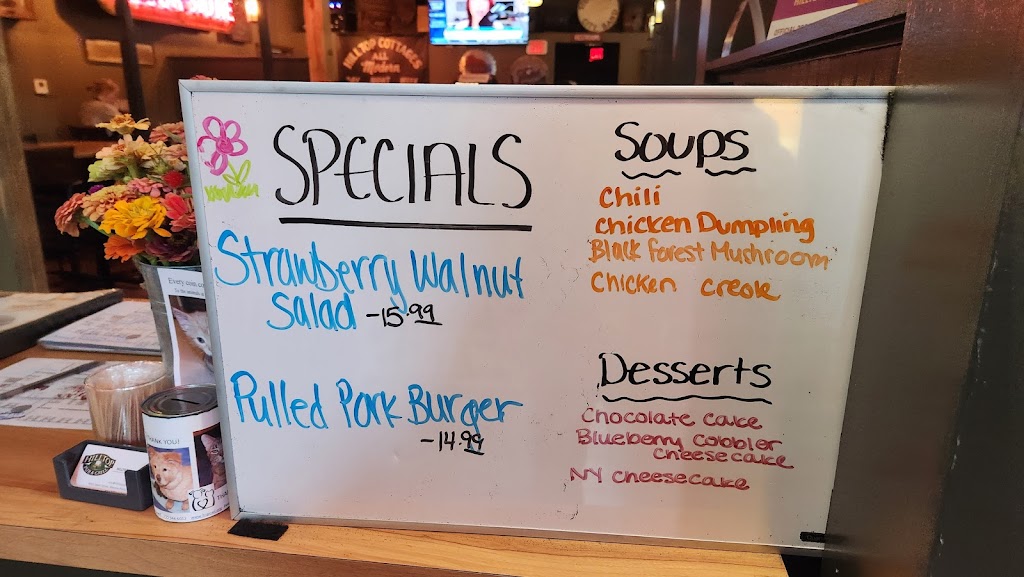 HILLTOP COTTAGES
SPECIALS
Strawberry Walnut
Salad -15.99
Pulled Pork Burger
-14.99
Soups
Chili
Chicken Dumpling
Black Forest Mushroom
Chicken creole
Desserts
Chocolate cake
Blueberry Cobbler
Cheesecake
NY cheesecake
THANK YOU!
HILLTOP